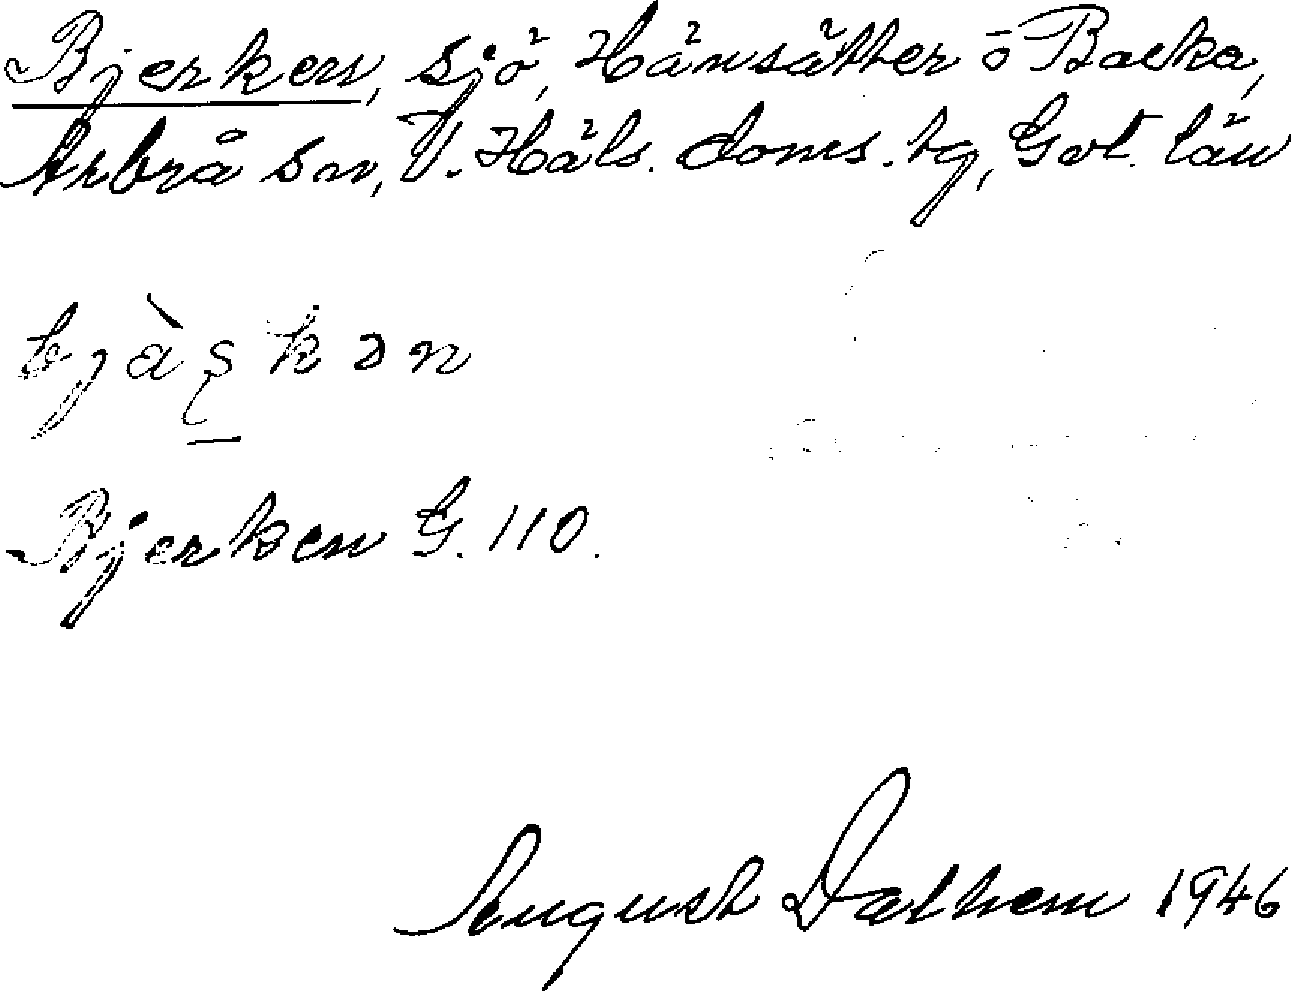 Bjerken, sjö, Hänsätter o Backa,
Arbrå sn, V. Häls. doms. tg, Gvl. län
Bjerken G. 110.
August Dalhem 1946